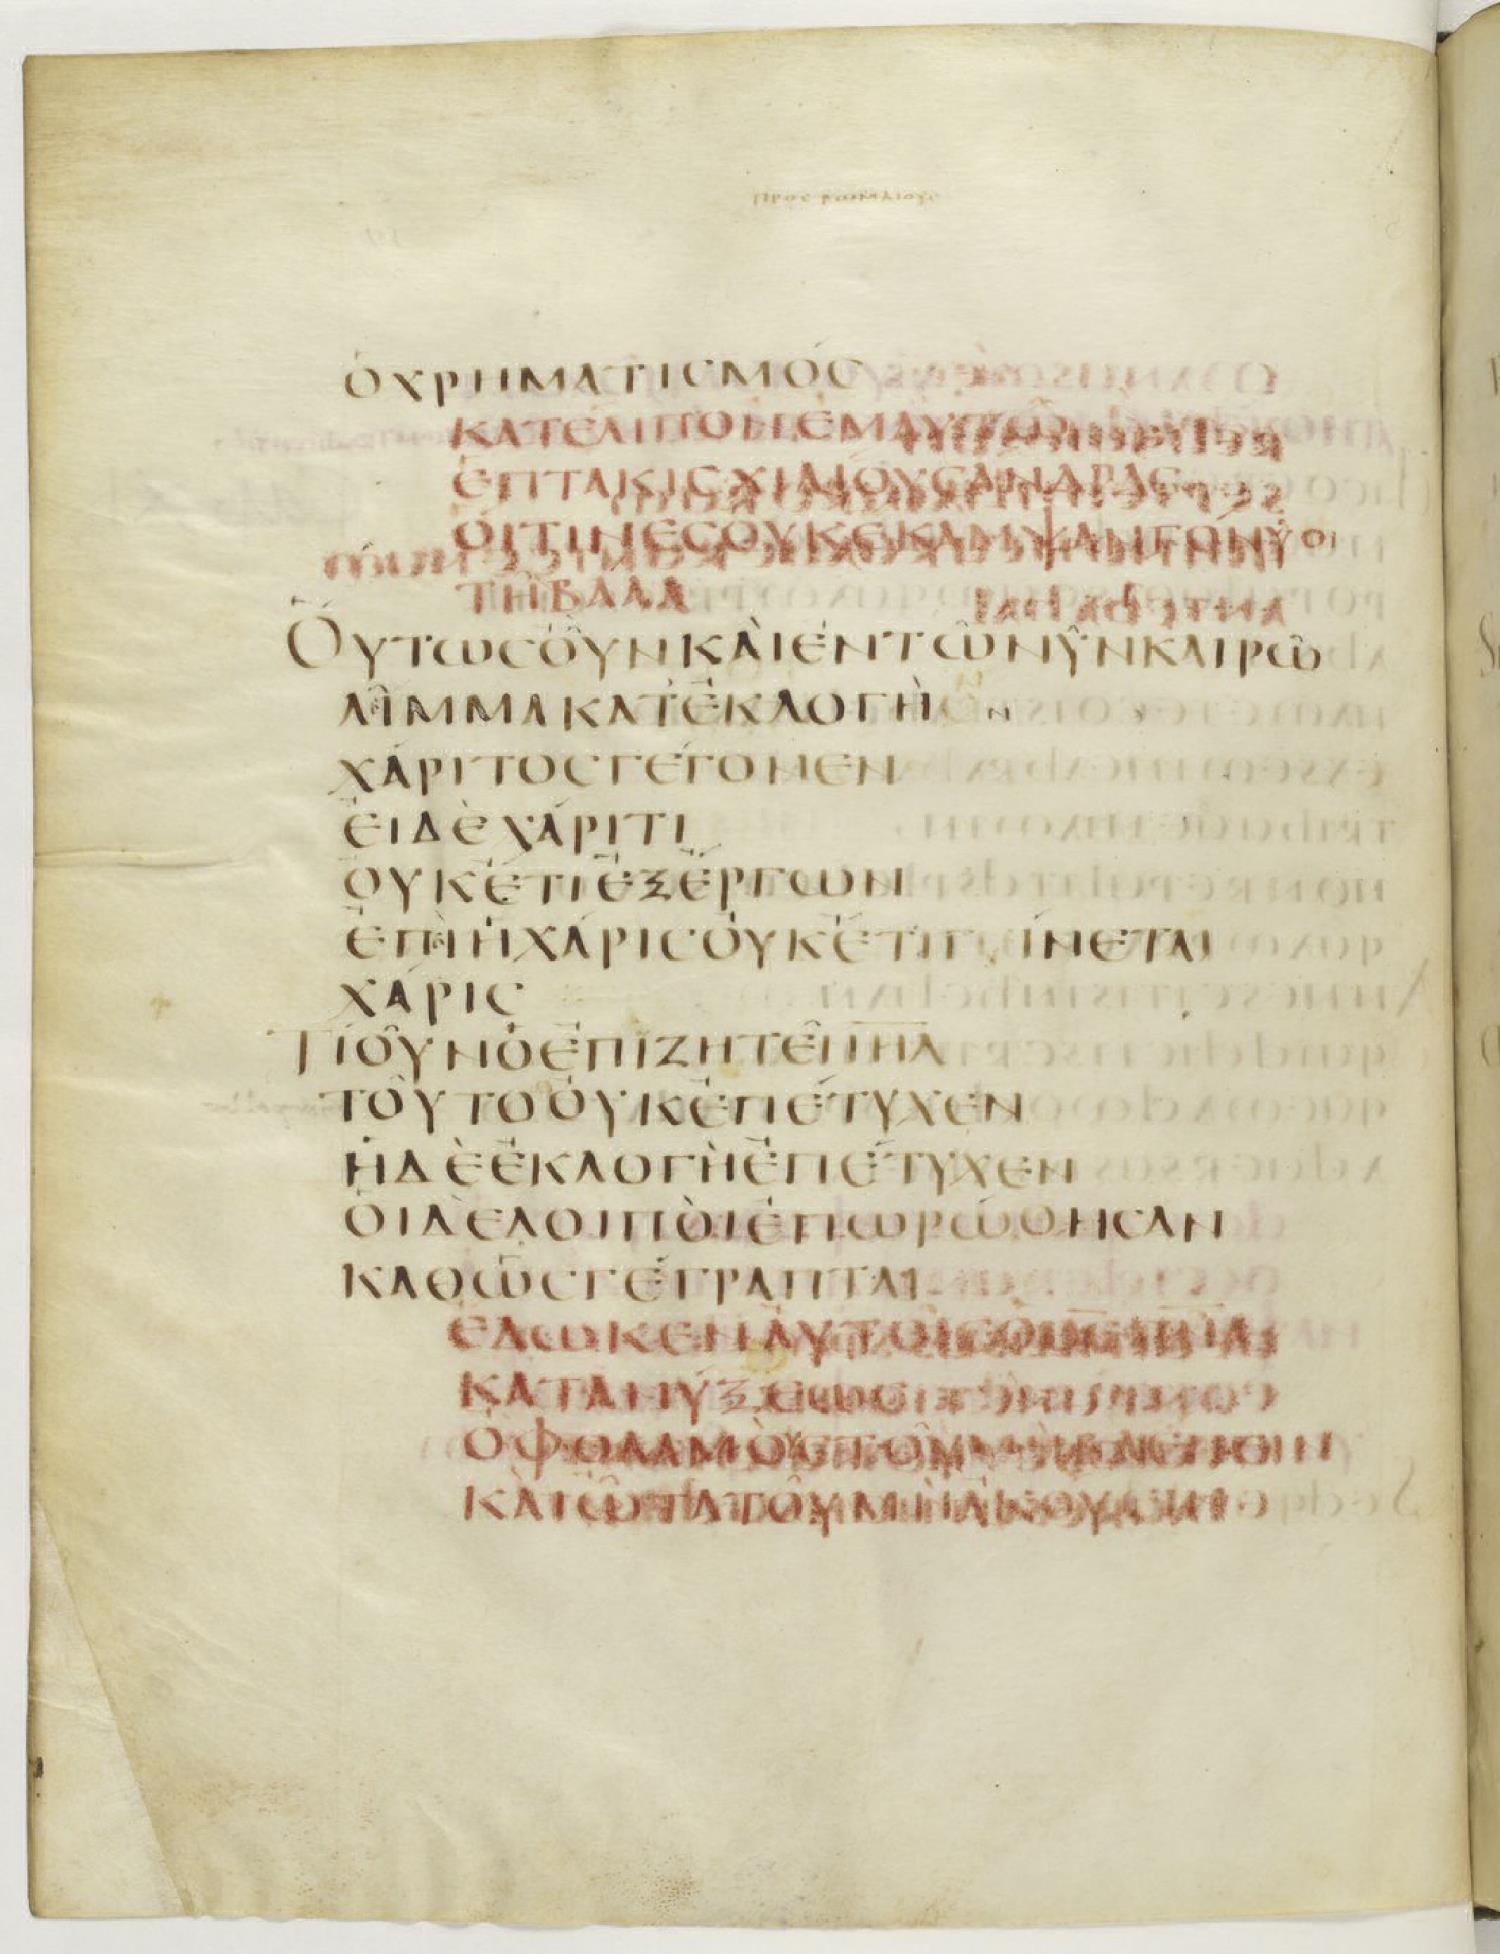 ΠΡΟС ΡΩΜΑΙΟΥС
ὉΧΡΗΜΑΤΙСΜΌС
ΚΑΤΕΛΙΠΟΝΕΜΑΥΤΩ
ΕΠΤΑΚΙСΧΙΛΙΟΥСΑΝΔΡΑС
ΟΙΤΙΝΕСΟΥΚΕΚΑΜΨΑΝΓΟΝΥ
ΤΗΒΑΑΛ
ΟΥΤΩСΟΥΝΚΑΙΕΝΤΩΝΥΝΚΑΙΡΩ
ΛΙΜΜΑΚΑΤΕΚΛΟΓΗΝ
ΧΑΡΙΤΟСΓΕΓΟΝΕΝ
ΕΙΔΕΧΑΡΙΤΙ
ΟΥΚΕΤΙΕΞΕΡΓΩΝ
ΕΠΙΗΧΑΡΙСΟΥΚΕΤΙΓΙΝΕΤΑΙ
ΧΑΡΙС
ΤΙΟΥΝΟΕΠΙΖΗΤΕΙΙΗΛ
ΤΟΥΤΟΟΥΚΕΠΕΤΥΧΕΝ
ΗΔΕΕΚΛΟΓΗΕΠΕΤΥΧΕΝ
ΟΙΔΕΛΟΙΠΟΙΕΠΩΡΩΘΗСΑΝ
ΚΑΘΩСΓΕΓΡΑΠΤΑΙ
ΕΔΩΚΕΝΑΥΤΟΙСΟΘСΠΝΑ
ΚΑΤΑΝΥΞΕΩС
ΟΦΘΑΛΜΟΥСΤΟΥΜΗΒΛΕΠΕΙΝ
ΚΑΙΩΤΑΤΟΥΜΗΑΚΟΥΕΙΝ